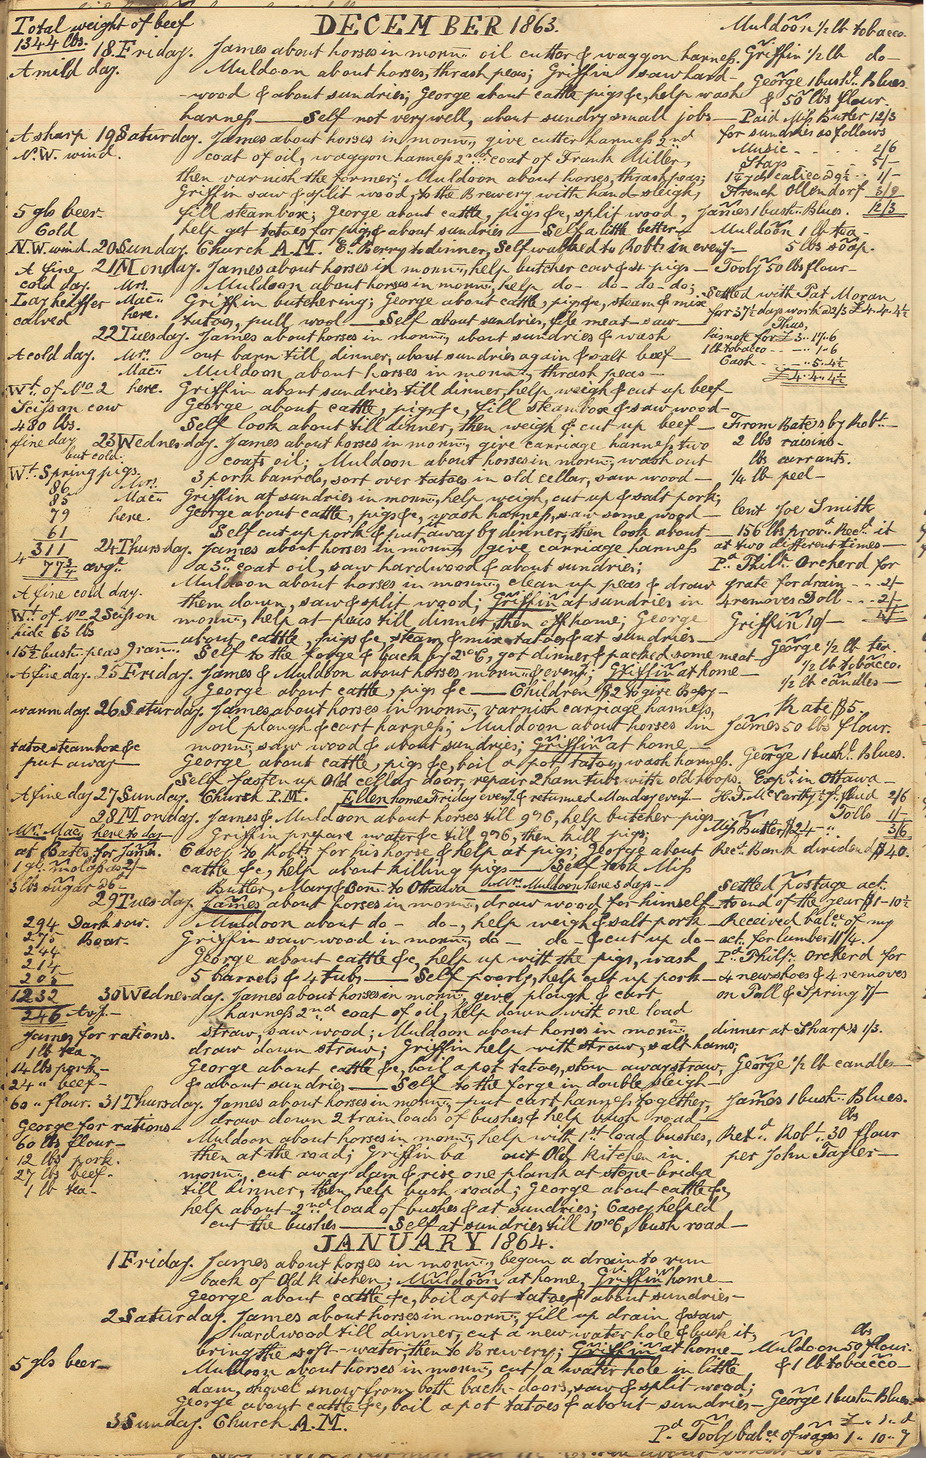 Total weight of beef
1344 lbs.
DECEMBER 1863.
Muldoon ½ lb tobacco
18 Friday. James about horses in mornᵍ, oil cutter & waggon harness. Griffin ½ lb do
A mild day. Muldoon about horses, thrash peas; Griffin saw hard-
wood & about sundries; George about cattle pigs &c, help wash
George 1 bushᶫ Blues
& 50 lbs flour.
harness — Self not very well, about sundry small jobs —
Paid Miss Burler 12/3
for sundries as follows
A sharp 19 Saturday. James about horses in mornᵍ, give cutter harness 2ⁿᵈ
N.W. wind. coat of oil, waggon harness 2ⁿᵈ coat of Frank Miller,
Music - - - 2/6
Stays - - 5/-
then varnish the former; Muldoon about horses, thrash peas;
Griffin saw & split wood, to the Brewery with hand-sleigh,
French Ollendorf
12/3
5 gls beer. fill steambox; George about cattle, pigs &c, split wood,
James 1 bushᶫ Blues.
Cold help get tatoes for pigs & about sundries — Self a little better —
Muldoon 1 lb tea -
5 lbs soap.
N.W. wind. 20 Sunday. Church A.M. E. Berry to dinner, Self walked to Robts in eveᵍ —
A fine 21 Monday. James about horses in mornᵍ, help butcher cow & 4 pigs —
Tooly 50 lbs flour —
cold day. Mrs. Muldoon about horses in mornᵍ, help do- do- do- do;
Settled with Pat Moran
Lay heiffer Macⁿ Griffin butchering; George about cattle, pigs &c, steam & mix
for 37½ days work @ 2/3 £4.4.4½
calved here. tatoes, pull wool — Self about sundries, file meat-saw —
Thus,
22 Tuesday. James about horses in mornᵍ, about sundries & wash
his note for £3..17.6
A cold day. Mrs. out barn till dinner, about sundries again & salt beef —
1 lb tobacco - - 1-6
Cash - - 5.4½
£4.4.4½
Macⁿ Muldoon about horses in mornᵍ, thrash peas —
Wᵗ of No 2 here. Griffin about sundries till dinner, help weigh & cut up beef —
Scisson cow George about cattle, pigs &c, fill steambox & saw wood —
480 lbs. Self look about till dinner, then weigh & cut up beef —
From Bates by Robᵗ —
fine day 23 Wednesday. James about horses in mornᵍ, give carriage harness two
2 lbs raisins -
but cold. coats oil; Muldoon about horses in mornᵍ, wash out
lbs currants.
Wᵗ Spring pigs. 3 pork barrels, sort over tatoes in old cellar, saw wood —
¼ lb peel —
86 Mrs. Griffin at sundries in mornᵍ, help weigh, cut up & salt pork;
85 Macⁿ
79 here. George about cattle, pigs &c, wash harness, saw some wood —
lent Joe Smith
61 Self cut up pork & put it away by dinner, then look about —
156 lbs provᵈ Recᵈ it
4 311 24 Thursday. James about horses in mornᵍ, give carriage harness
at two different times —
77¾ avgᵉ. a 3ʳᵈ coat oil, saw hardwood & about sundries;
Pᵈ Philⁿ Orcherd for
Muldoon about horses in mornᵍ, clean up peas & draw
grate for drain - - 2/-
A fine cold day. them down, saw & split wood; Griffin at sundries in
4 removes Doll - - 2/-
Wᵗ of No 2 Scisson mornᵍ, help at peas till dinner, then off home; George
Griffin 10/-
4/-
hide 63 lbs about cattle, pigs &c, steam & mix tatoes & at sundries —
15½ bush. peas Self to the forge & back by 2 o'C, got dinner & packed some meat
George ½ lb tea.
A fine day. 25 Friday. James & Muldoon about horses mornᵍ & eveᵍ; Griffin at home —
½ lb tobacco.
George about cattle, pigs &c — Children $2 to give Betsy -
½ lb candles —
warm day. 26 Saturday. James about horses in mornᵍ, varnish carriage harness,
Kate $5.
oil plough & cart harness; Muldoon about horses in
James 50 lbs flour.
tatoe steambox &c mornᵍ, saw wood & about sundries; Griffin at home —
put away — George about cattle, pigs &c, boil a pot tatoes, wash harness.
George 1 bushᶫ Blues.
Self fasten up Old cellar door, repair 2 ham tubs with old hoops.
Expˢ in Ottawa —
A fine day 27 Sunday. Church P.M. Ellen home Friday eveᵍ & returned Monday eveᵍ —
H. F. McCarthy 2/6
28 Monday. James & Muldoon about horses till 9 o'C, help butcher pigs
Tolls 1/-
Mrs. Mac. here to day — Griffin prepare water &c till 9 o'C, then kill pigs;
Miss Butler $24 -
3/6
at Bates, for Jamˢ. Casey to Robts for his horse & help at pigs; George about
Recᵈ Bank dividend $40.
1 gl. molasses cattle &c, help about killing pigs — Self took Miss
3 lbs sugar Butler, Mary & Bom. to Ottawa Mrs. Muldoon here ½ day —
Settled postage act.
29 Tuesday. James about horses in mornᵍ, draw wood for himself
to end of the year $1-10½
294 Dark sow. Muldoon about do - do -, help weigh & salt pork —
Received balᶜᵉ of my
275 Boar. Griffin saw wood in mornᵍ, do - do - & cut up do -
act. for lumber 11/4.
244 George about cattle &c, help up with the pigs, wash
Pᵈ Philⁿ Orcherd for
214
205 5 barrels & 4 tubs — Self poorly, help cut up pork —
4 new shoes & 4 removes
1232 30 Wednesday. James about horses in mornᵍ, give plough & cart
on Doll & Spring 7/-
246 Avg. — harness 2ⁿᵈ coat of oil, help down with one load
James for rations. straw, saw wood; Muldoon about horses in mornᵍ,
dinner at Sharps 1/3.
1 lb tea — draw down straw; Griffin help with straw, salt hams;
14 lbs pork — George about cattle &c, boil a pot tatoes, stow away straw,
George ½ lb candles —
24 " beef — & about sundries — Self to the forge in double sleigh —
60 " flour. 31 Thursday. James about horses in mornᵍ, put cart harness together,
James 1 bush. Blues.
George for rations — draw down 2 train loads of bushes & help bush road —
lbs
60 lbs flour — Muldoon about horses in mornᵍ, help with 1ˢᵗ load bushes,
Retᵈ Robᵗ 30 flour
12 lbs pork. then at the road; Griffin ba out Old Kitchen in
per John Taylor —
27 lbs beef. mornᵍ, cut away dam & rise one plank at stone-bridge
1 lb tea - till dinner, then help bush road; George about cattle &c,
help about 2ⁿᵈ load of bushes & at sundries; Casey helped
cut the bushes — Self at sundries till 10 o'C, bush road —
JANUARY 1864.
1 Friday. James about horses in mornᵍ, began a drain to run
back of Old Kitchen; Muldoon at home, Griffin home —
George about cattle &c, boil a pot tatoes & about sundries —
2 Saturday. James about horses in mornᵍ, fill up drain & saw
hardwood till dinner, cut a new water hole & bush it,
lbs
bring the soft-water, then to Brewery; Griffin at home —
Muldoon 50 flour.
5 gls beer — Muldoon about horses in mornᵍ, cut a water hole in little
& 1 lb tobacco —
dam, shovel snow from both back-doors, saw & split wood;
George about cattle &c, boil a pot tatoes & about sundries —
George 1 bush. Blues.
3 Sunday. Church A.M.
£ s d
Pᵈ Tooly balᶜᵉ of wages 1 .. 10 .. 7